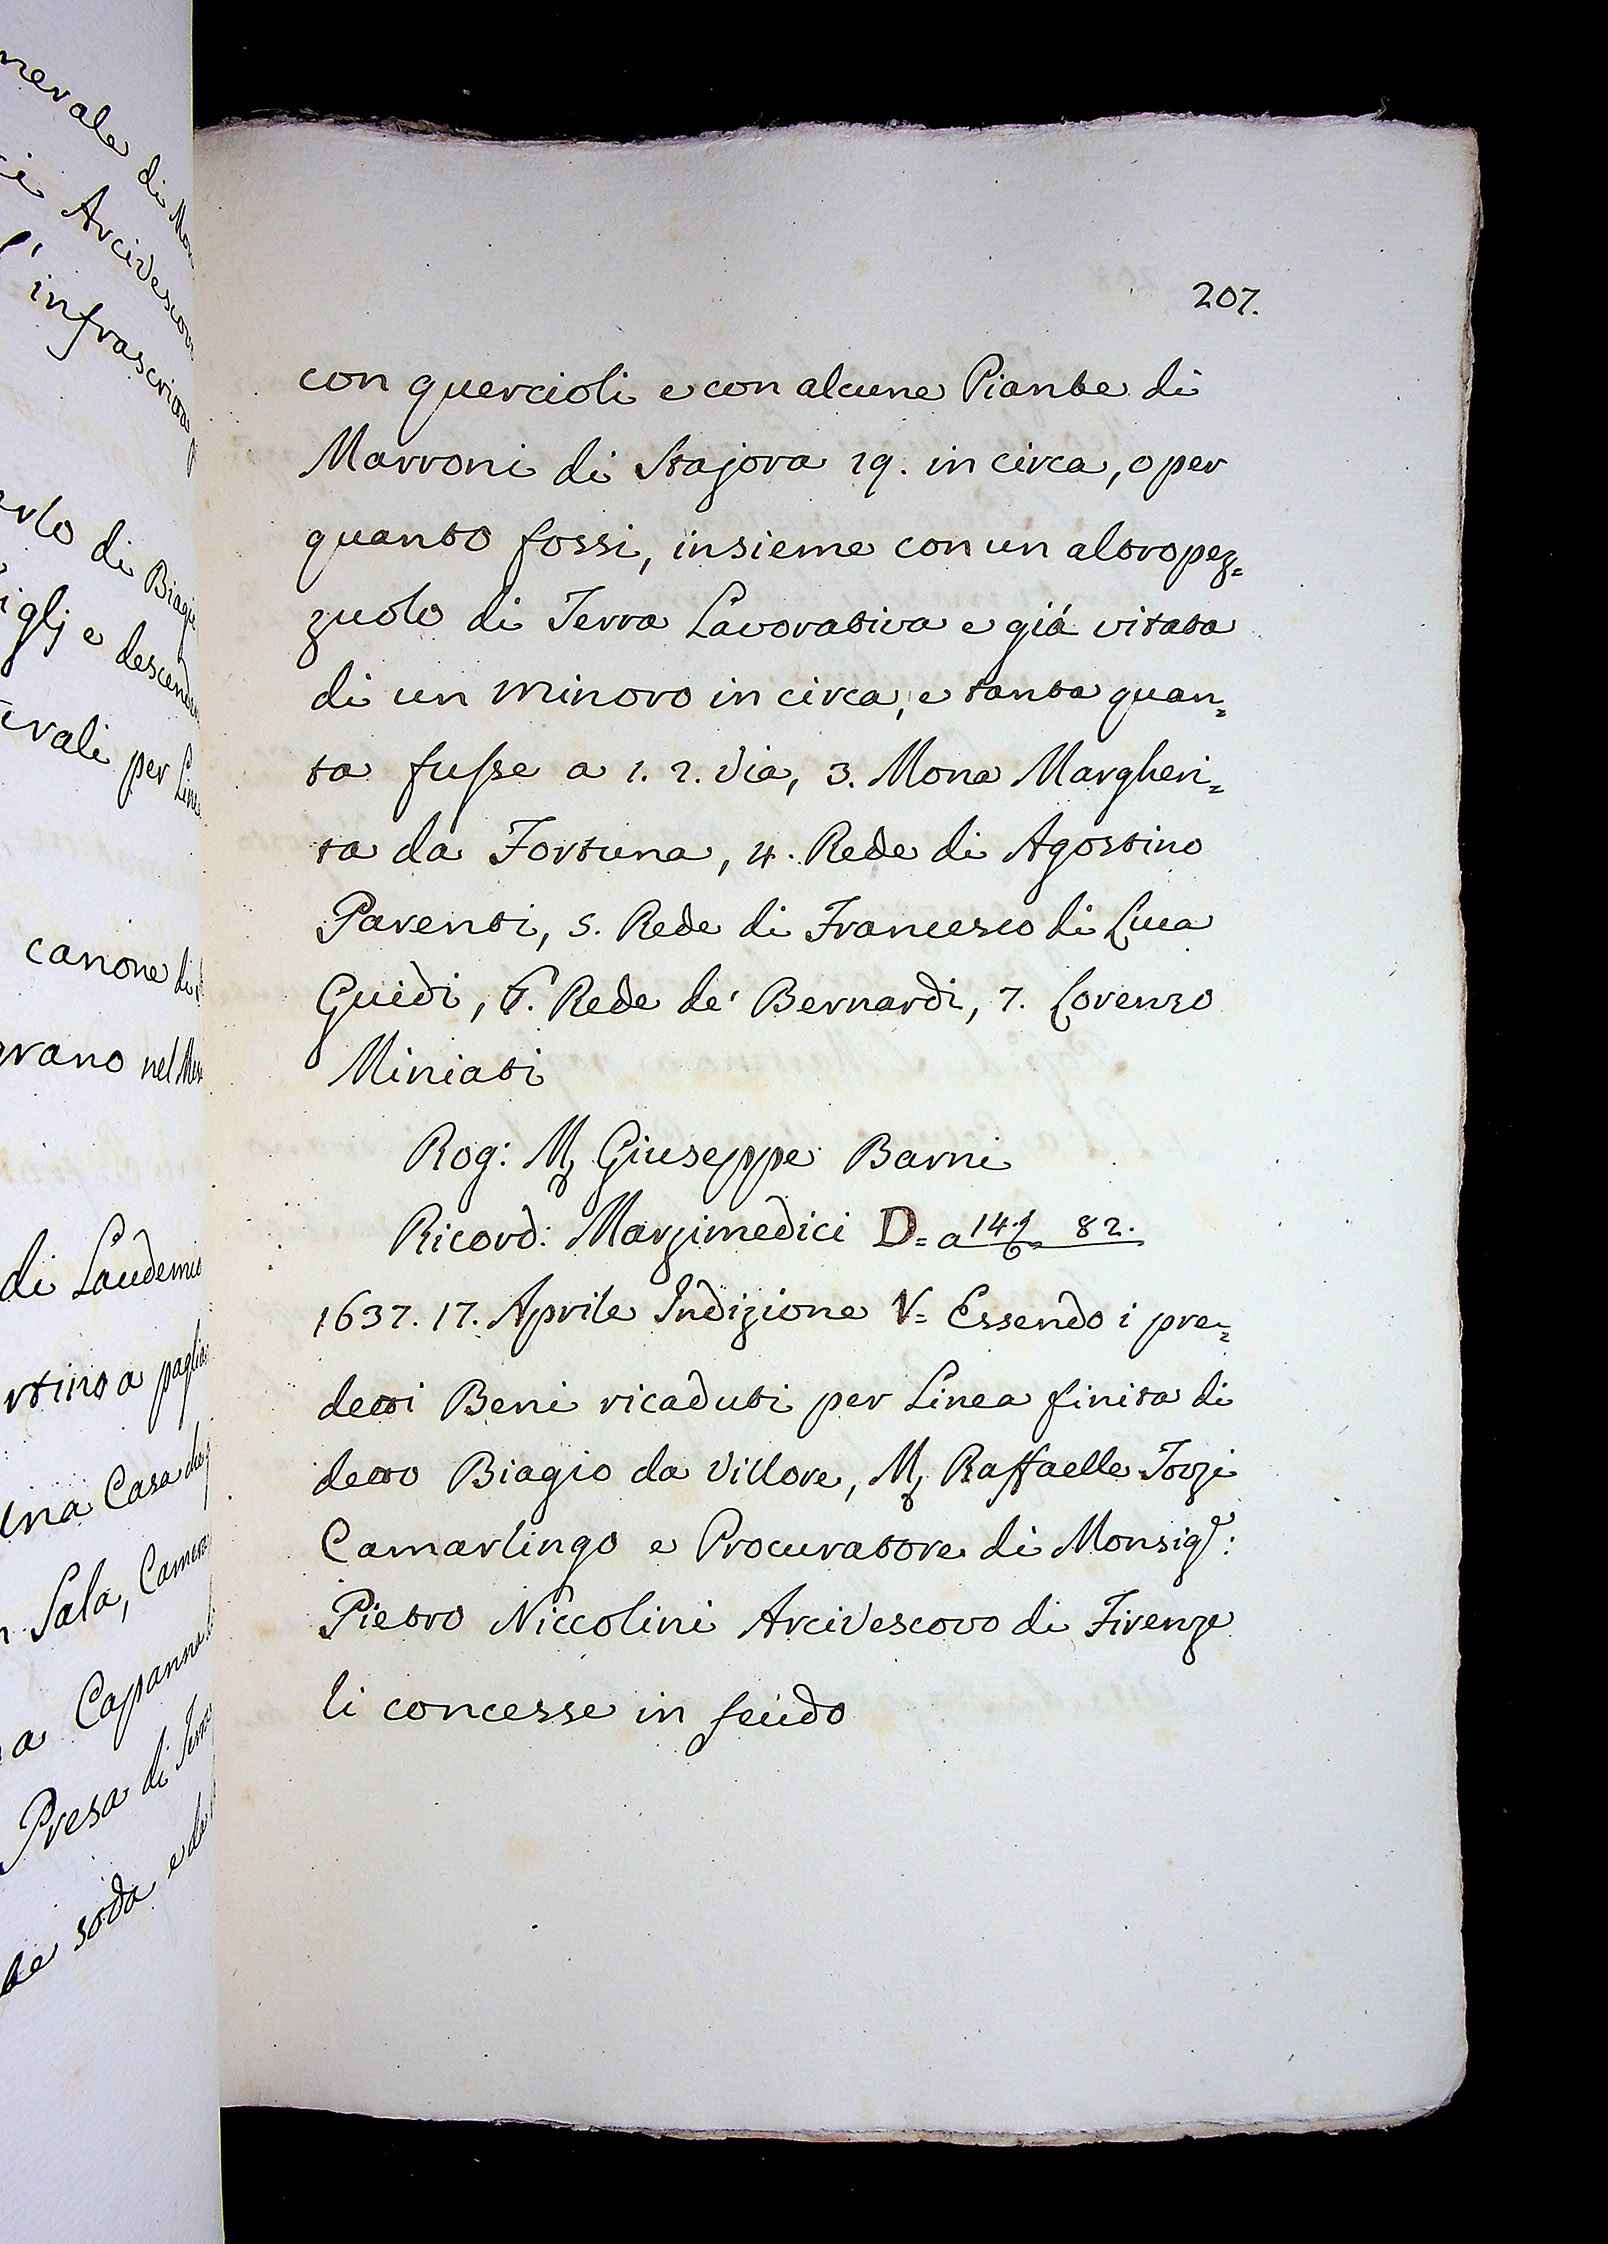 nerale di Mon
ci Arcivescov
l'infrascritto
erto di Biagio
figlj e descend
urali per Line
canone di
grano nel Me
di Laudemio
Casa
n Sala, Camera
a Capanna
Presa di Terra
soda e
207.
con quercioli e con alcune Piante di
Marroni di Stajora 19. in circa, o per
quanto fossi, insieme con un altro pez=
zuolo di Terra Lavorativa e giá vitata
di un minoro in circa, e tanta quan=
ta fusse a 1. 2. Via, 3. Mona Margheri=
ta da Fortuna, 4. Rede di Agostino
Parenti, 5. Rede di Francesco di Luca
Guidi, 6. Rede de' Bernardi, 7. Lorenzo
Miniati
Rog: Mʒ Giuseppe Barni
Ricord: Marzimedici D= a 82.
1637. 17. Aprile Indizione V= Essendo i pre=
detti Beni ricaduti per Linea finita di
detto Biagio da Villore, Mʒ Raffaelle Tozzi
Camarlingo e Procuratore di Monsigr:
Pietro Niccolini Arcivescovo di Firenze
li concesse in feudo